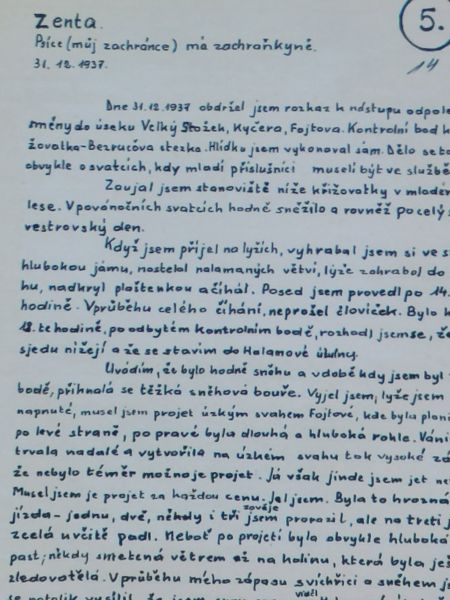 Zenta.
5.
Psice (můj zachránce) má zachraňkyně.
14
31. 12. 1937.
Dne 31.12.1937 obdržel jsem rozkaz k nástupu odpole
směny do úseku Velký Stožek, Kyčera, Fojtova. Kontrolní bod k
žovatka-Bezručova stezka. Hlídku jsem vykonával sám. Dělo se to
obvykle o svátcích, kdy mladí příslušníci museli být ve službě
Zaujal jsem stanoviště níže křižovatky v mladém
lese. V povánočních svátcích hodně sněžilo a rovněž po celý s
vestrovský den.
Když jsem přijel na lyžích, vyhrabal jsem si ve s
hlubokou jámu, nastelal nalamaných větví, lyže zahrabal do
hu, nadkryl plaštěnkou a číhal. Posed jsem provedl po 14.
hodině. V průběhu celého číhání, neprošel človíček. Bylo k
18. té hodině, po odbytém kontrolním bodě, rozhodl jsem se, že
sjedu nížeji a že se stavím do Halamové
Uvádím, že bylo hodně sněhu a v době kdy jsem byl
bodě, přihnala se těžká sněhová bouře. Vyjel jsem, lyže jsem
napnuté, musel jsem projet úzkým svahem Fojtové, kde byla plani
po levé straně, po pravé byla dlouhá a hluboká rokle. Váni
trvala nadále a vytvořila na úzkém svahu tak vysoké zá
že nebylo téměř možno je projet. Já však jinde jsem jet ne
Musel jsem je projet za každou cenu. Jel jsem. Byla to hrozná
jízda - jednu, dvě, někdy i tři závěje jsem prorazil, ale na třetí j
zcela určitě padl. Neboť po projetí byla obvykle hluboká
past, někdy smetená větrem až na holinu, která byla ješ
zledovatělá. V průběhu mého zápasu s vichřicí a sněhem js
se natolik vysílil, že jsem
viděl